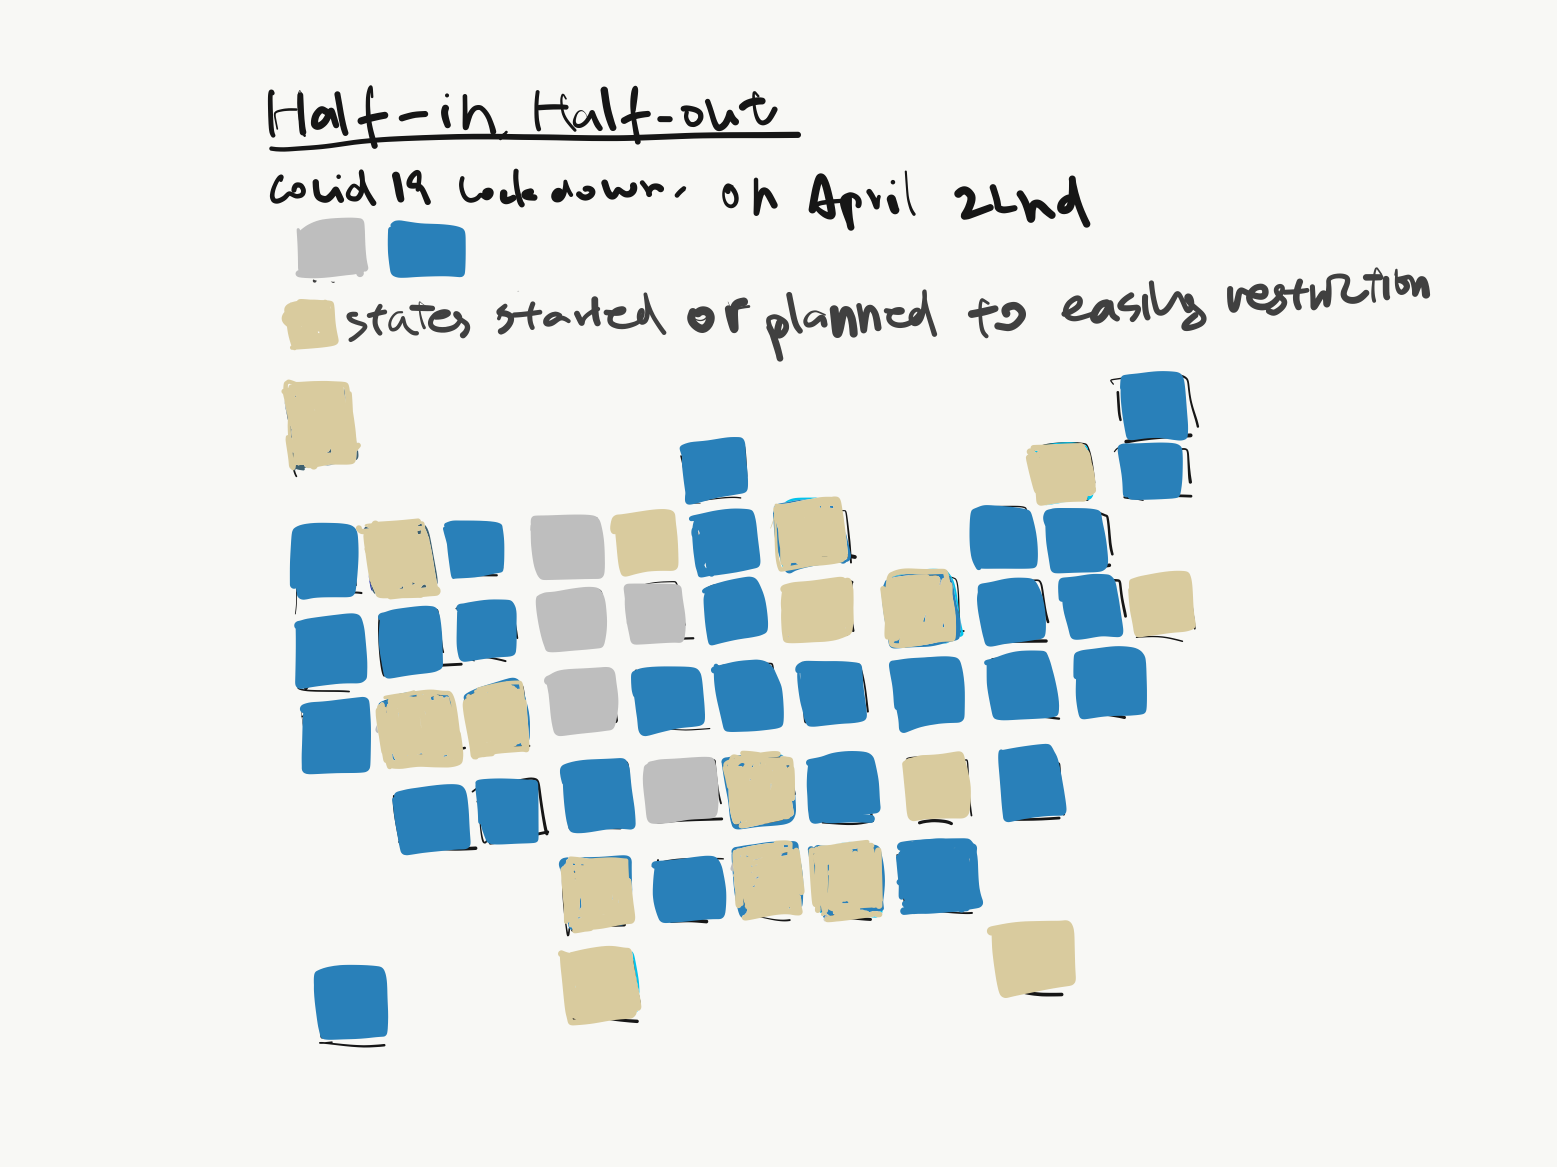 Half-in Half-out
Covid 19 lockdown. on April 22nd
states started or planned to easily restriction